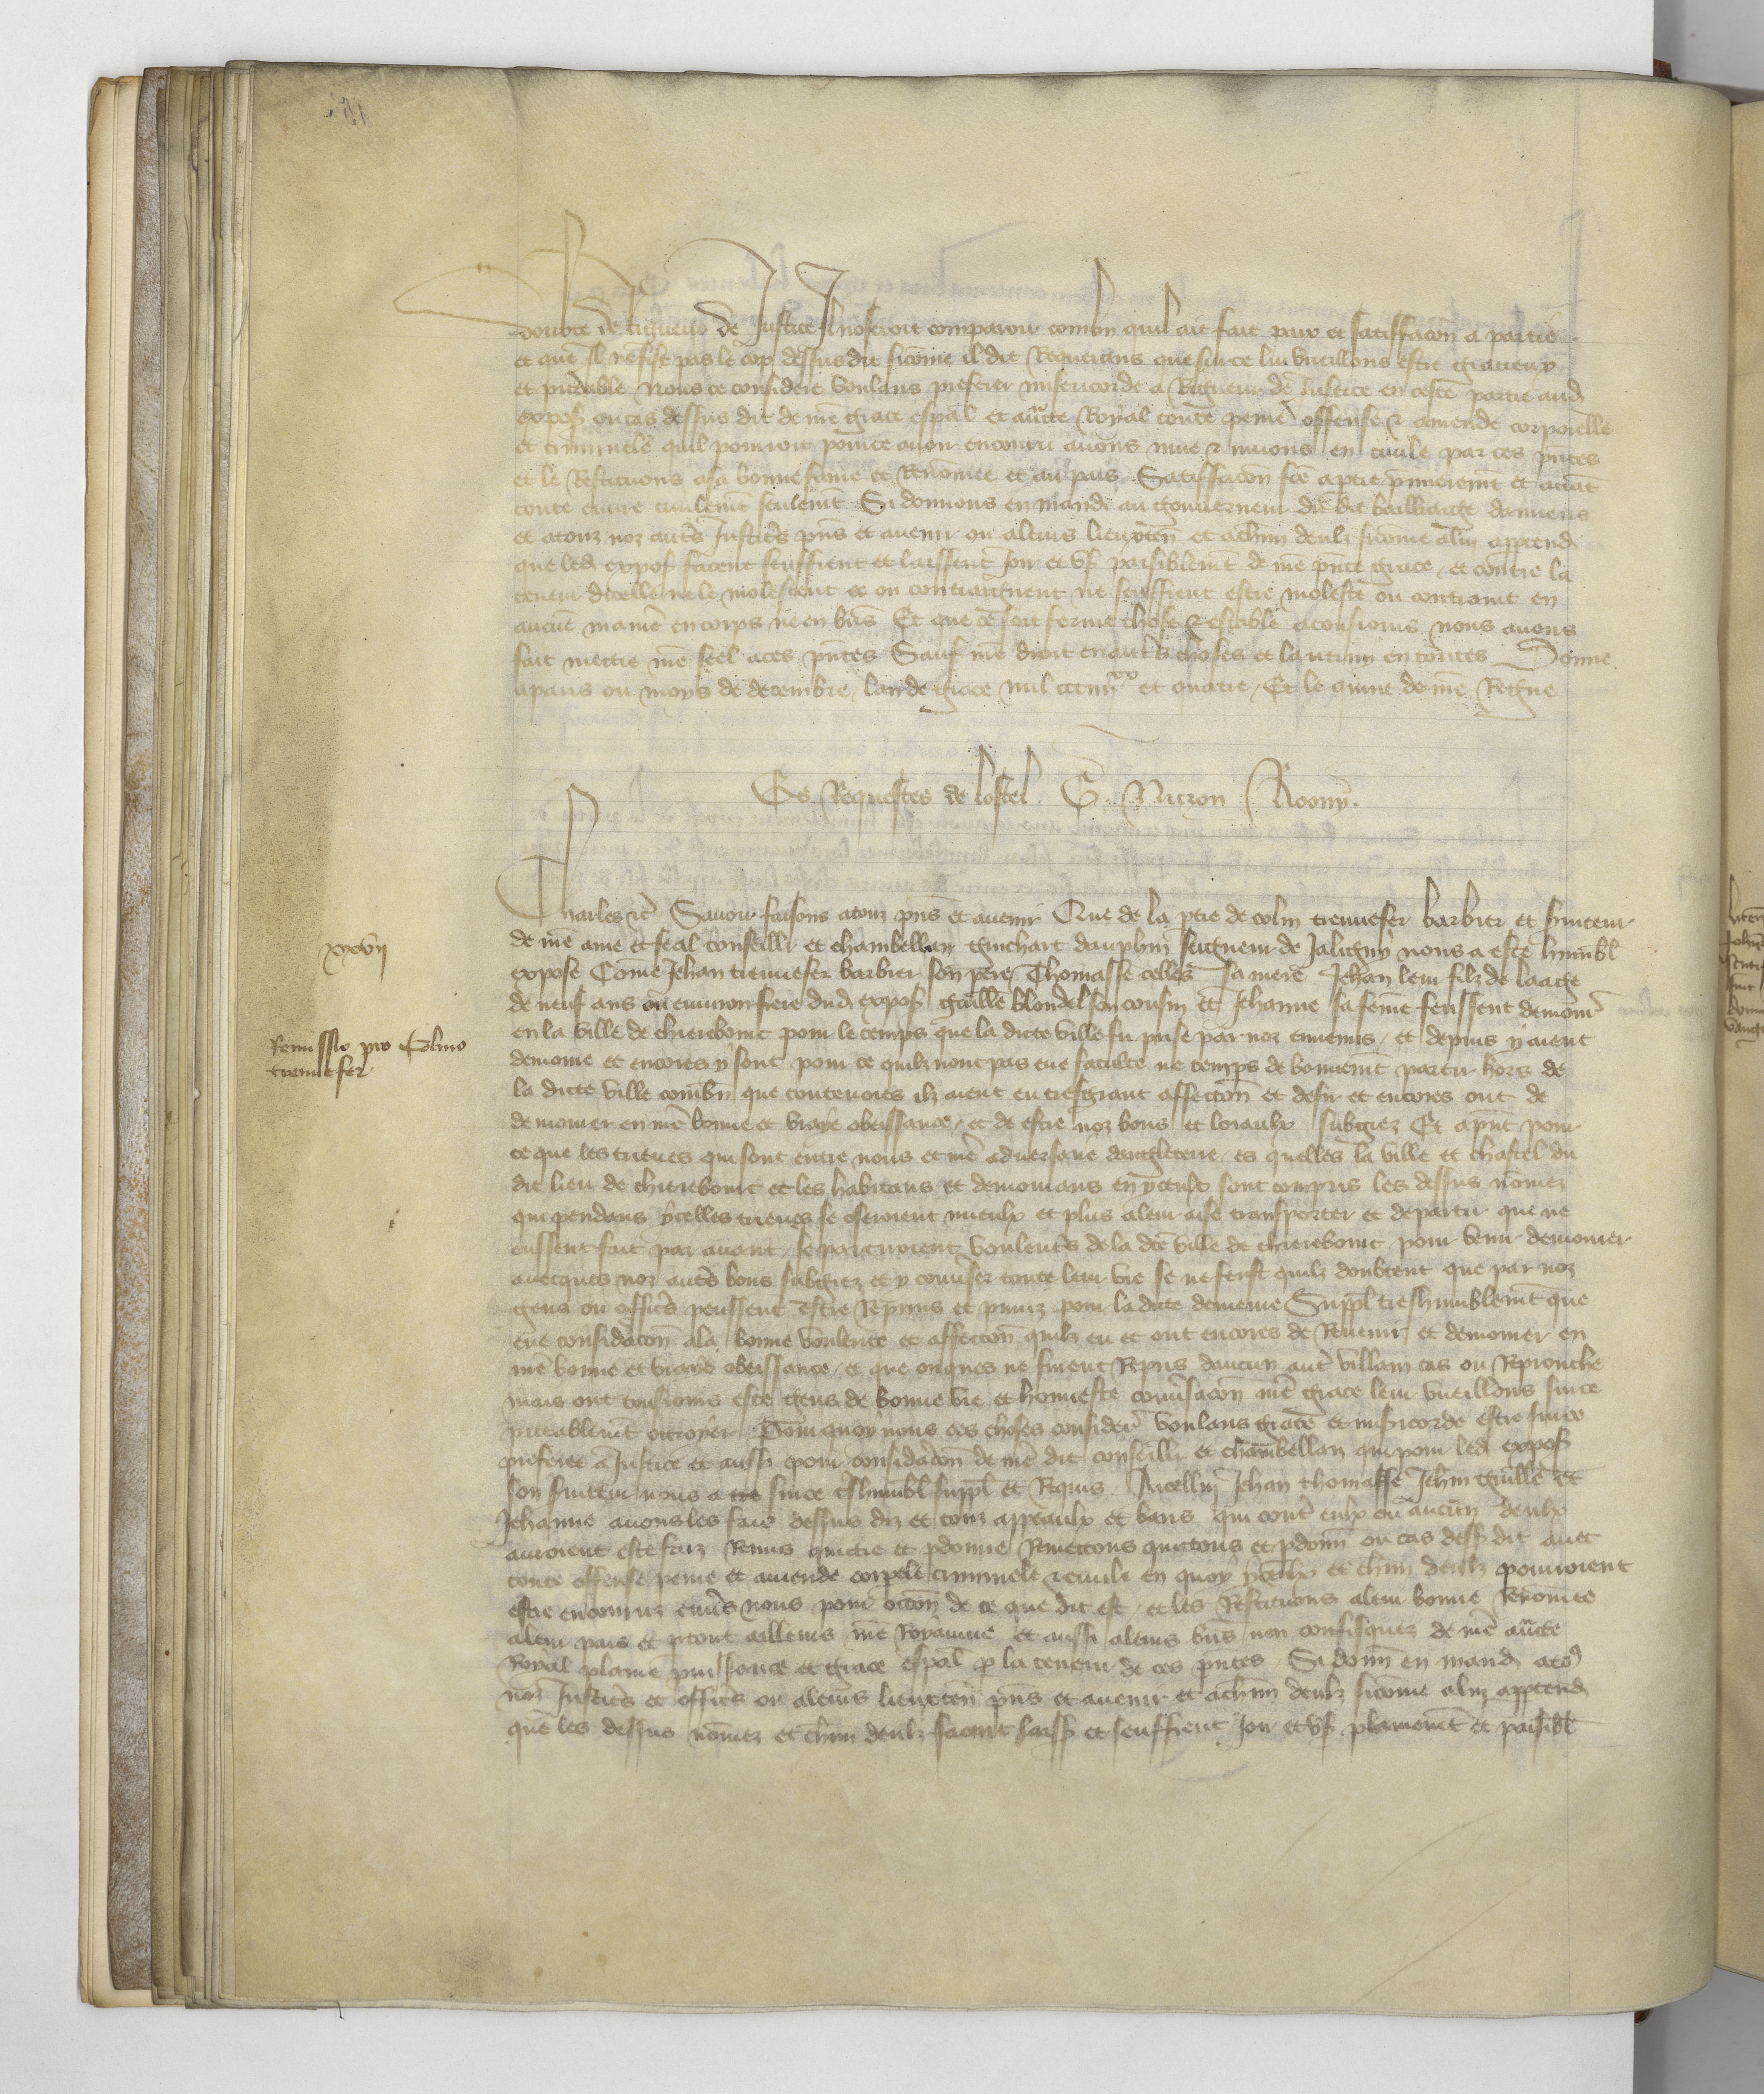 doubte de rigueur de Justice Il noseroit comparoir combn quil ait fait paix et satiffacon a partie
et que Il refist pas le cop dessusdit sicome il dit Requerans que surce lui vueillons estre gracieux
et piteable Nous ce considere voulans preferer misericorde a Rigueur de Justice en ceste partie aud
expos ou cas dessus dit de nre grace espal et aucte Royal toute peine offense & amende corporelle
et criminele quil pourroit pour ce avoir encouru avons mue & muons en civile par ces pntes
et le Restituons asa bonne fame et Renomee et au pais Satiffacon fce aptie premieremt et
toute euvre civilemt seulemt Si donnons en mandt au gouverneur du dit bailliage damiens
et atouz noz autres Justiciers pns et avenir ou aleurs lieuxten et achun deulz sicome alui apptendr
que led expos facent seuffrent et laissent Joir et us paisiblemt de nre pnte grace et contre la
teneur dicelle ne le molestent ou contraignent ne seuffrent estre moleste ou contraint en
aucune maniere en corps ne en biens Et que ce soit ferme chose & estable atousiours nous avons
fait mettre nre seel aces pntes Sauf nre droit en autres choses et lautrui en toutes Donne
aparis ou moys de decembre lan de grace mil ccciiiixx et quatre Et le quint de nre Regne
Es Requestes de lostel G. Nitzon
Charles etc Savoir faisons atouz pns et avenir Que de la ptie de colin trenuefer barbier et serviteur
de nre ame et feal conseillr et chambellan guichart dauphin seigneur de Jaligny nous a este humbl
expose Come Jehan trenuefer barbier son pere Thomasse celles sa mere Jehan leur filz de laage
de neuf ans ou environ frere dud expos guille blondel son cousin et Jehanne sa feme feussent demour
en la ville de chierebourc pour le temps que la dicte ville fu prise par noz ennemis et depuis y aient
xxvii
Remissio pro Colino
trenuefer
demoure et encores y sont pour ce quilz nont pas eue faculte ne temps de bonnemt partir hors de
la dicte ville combn que toutevoies ilz aient eu tresgrant affeccon et desir et encores ont de
demourer en nre bonne et vraye obeissance et de estre noz bons et loiaulx subgiez Et apnt pour
ce que les treues qui sont entre nous et nre adversaire dangleterre es quelles la ville et chastel du
dit lieu de chierebourc et les habitans et demourans en yceulx sont compris les dessus nomez
qui pendans ycelles treues se oseroient mieulx et plus aleur aise transporter et departir que ne
eussent fait par avant se partiroient voulentrs de la dce ville de chierebourc pour venir demourer
avecques noz autres bons subgiez et y converser toute leur vie se ne feust quilz doubtent que par noz
gens ou officrs peussent estre Repris et puniz pour la dicte demeure Suppl treshumblemt que
eue consideracon ala bonne voulente et affeccon quilz eu et ont encores de Revenir et demourer en
nre bonne et vraye obeissance et que onques ne furent Repris daucun autre villain cas ou Reprouche
mais ont tousiours este gens de bonne vie et honneste conversacon nre grace leur vueillons surce
piteablemt ottroyer Pour quoy nous ces choses consider voulans grace et misericorde estre surce
preferee a Justice et aussi pour consideracon de nre dit conseillr et chambellan qui pour led expos
son serviteur nous a surce treshumbl suppl et Requis Aicelluy Jehan thomasse Jehan guille et
Jehanne avons les faiz dessus diz et touz appeaulx et bans qui contre eulx ou aucun deulx
auroient este faiz Remis quictie et pdonne Remettons quittons et pdonn ou cas dess dit avec
toute offense peine et amende corpele criminele & civile en quoy yceulx et chun deulz pourroient
estre encouruz envers nous pour occon de ce que dit est et les Restituons aleur bonne Renomee
aleur pais et ptout ailleurs nre Royaume et aussi aleurs biens non confisquez de nre aucte
Royal plaine puissance et grace espal p la teneur de ces pntes Si donn en mandt ato9
noz Justicrs et officrs ou aleurs lieuxten pns et avenir et achun deulz sicome alui apptendr
que les dessus nomez et chun deulz facent laiss et seuffrent Joir et us plainemt et paisibl